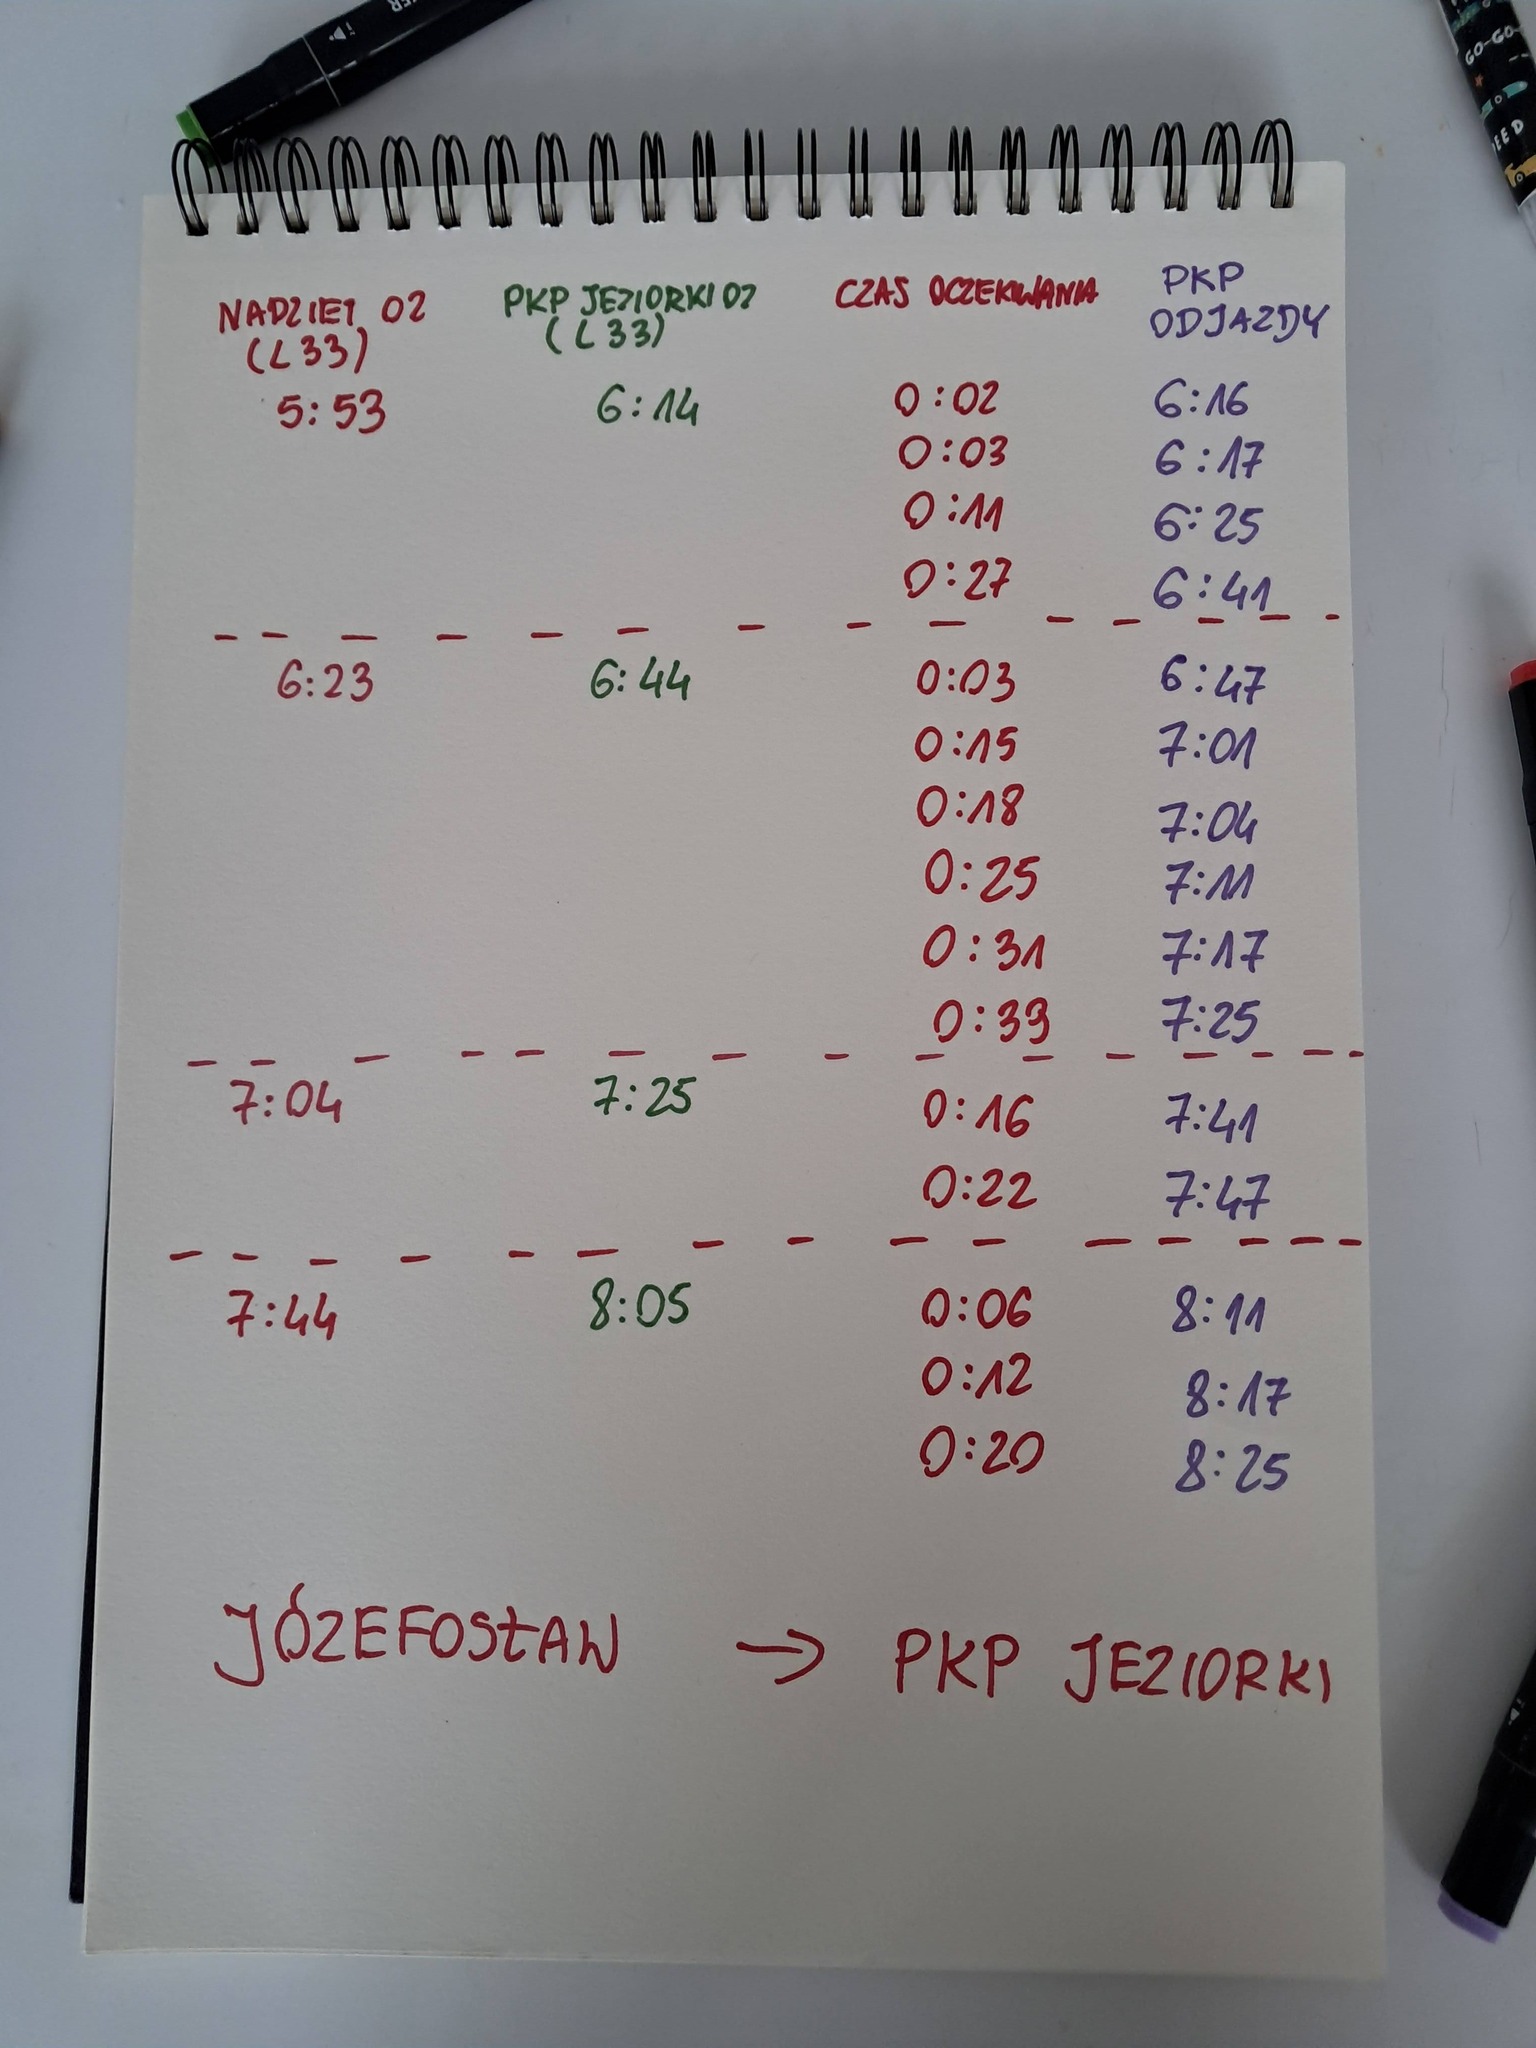 GO-GO
EED
NADZIEI 02 PKP JEZIORKI 02 CZAS OCZEKIWANIA PKP
(L33) (L33) ODJAZDY
5:53 6:14 0:02 6:16
0:03 6:17
0:11 6:25
0:27 6:41
6:23 6:44 0:03 6:47
0:15 7:01
0:18 7:04
0:25 7:11
0:31 7:17
0:39 7:25
7:04 7:25 0:16 7:41
0:22 7:47
7:44 8:05 0:06 8:11
0:12 8:17
0:20 8:25
JÓZEFOSŁAW → PKP JEZIORKI